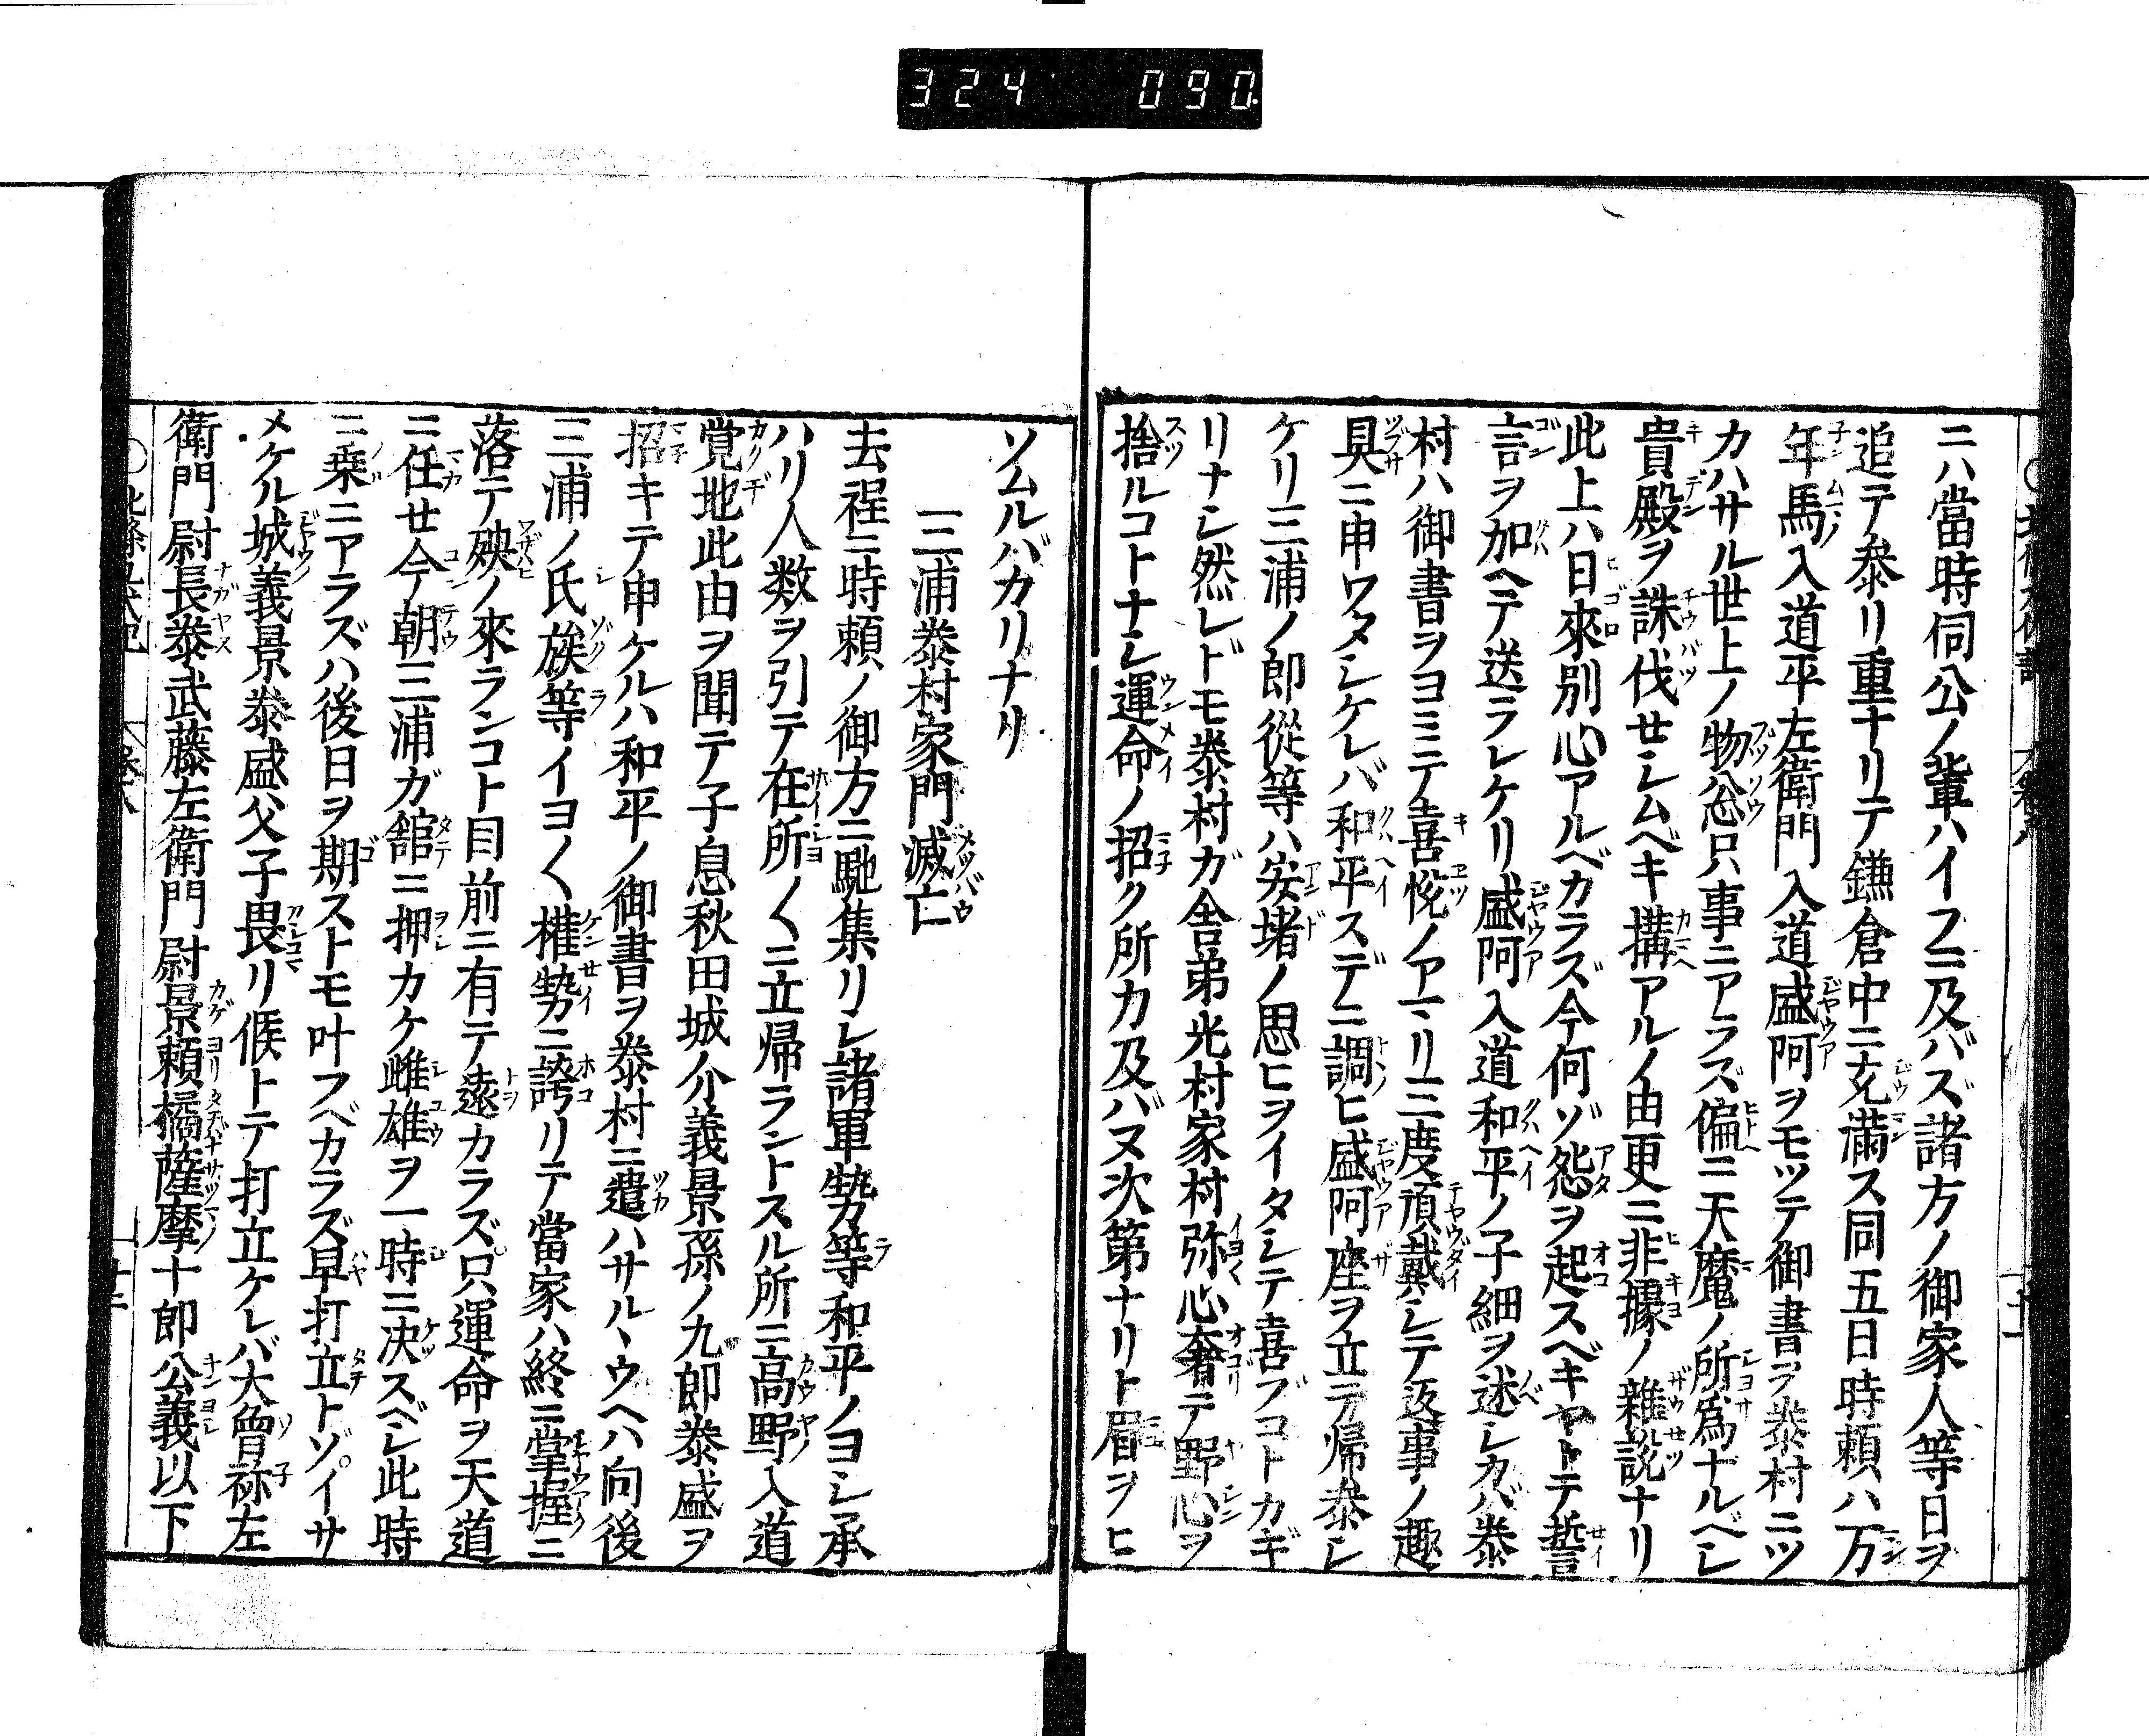 324 090
ニハ當時伺公ノ輩ハイフニ及バズ諸方ノ御家人等日ヲ
追テ參リ重ナリテ鎌倉中ニ充滿ス同五日時頼ハ万
年馬入道平左衛門入道盛阿ヲモツテ御書ヲ泰村ニツ
カハサル世上ノ物忩只事ニアラズ偏ニ天魔ノ所爲ナルベシ
貴殿ヲ誅伐セシムベキ搆アルノ由更ニ非據ノ雜説ナリ
此上ハ日來別心アルベカラズ今何ゾ怨ヲ起スベキヤトテ誓
言ヲ加ヘテ送ラレケリ盛阿入道和平ノ子細ヲ述シカバ泰
村ハ御書ヲヨミテ喜悦ノアマリ三度頂戴シテ返事ノ趣
具ニ申ワタシケレバ和平スデニ調ヒ盛阿座ヲ立テ帰參シ
ケリ三浦ノ郎從等ハ安堵ノ思ヒヲイタシテ喜ブコトカギ
リナシ然レドモ泰村ガ舎弟光村家村弥心奢テ野心ヲ
捨ルコトナシ運命ノ招ク所力及バヌ次第ナリト眉ヲヒ
ソムルバカリナリ
三浦泰村家門滅亡
去程ニ時頼ノ御方ニ馳集リシ諸軍勢等和平ノヨシ承
ハリ人数ヲ引テ在所〱ニ立帰ラントスル所ニ高野入道
覚地此由ヲ聞テ子息秋田城介義景孫ノ九郎泰盛ヲ
招キテ申ケルハ和平ノ御書ヲ泰村ニ遣ハサルヽウヘハ向後
三浦ノ氏族等イヨ〱權勢ニ誇リテ當家ハ終ニ掌握ニ
落テ殃ノ來ランコト目前ニ有テ遠カラズ只運命ヲ天道
ニ任セ今朝三浦ガ舘ニ押カケ雌雄ヲ一時ニ決スベシ此時
ニ乗ニアラズハ後日ヲ期ストモ叶フベカラズ早打立トゾイサ
メケル城義景泰盛父子畏リ候トテ打立ケレバ大曽祢左
衛門尉長泰武藤左衛門尉景頼橘薩摩十郎公義以下